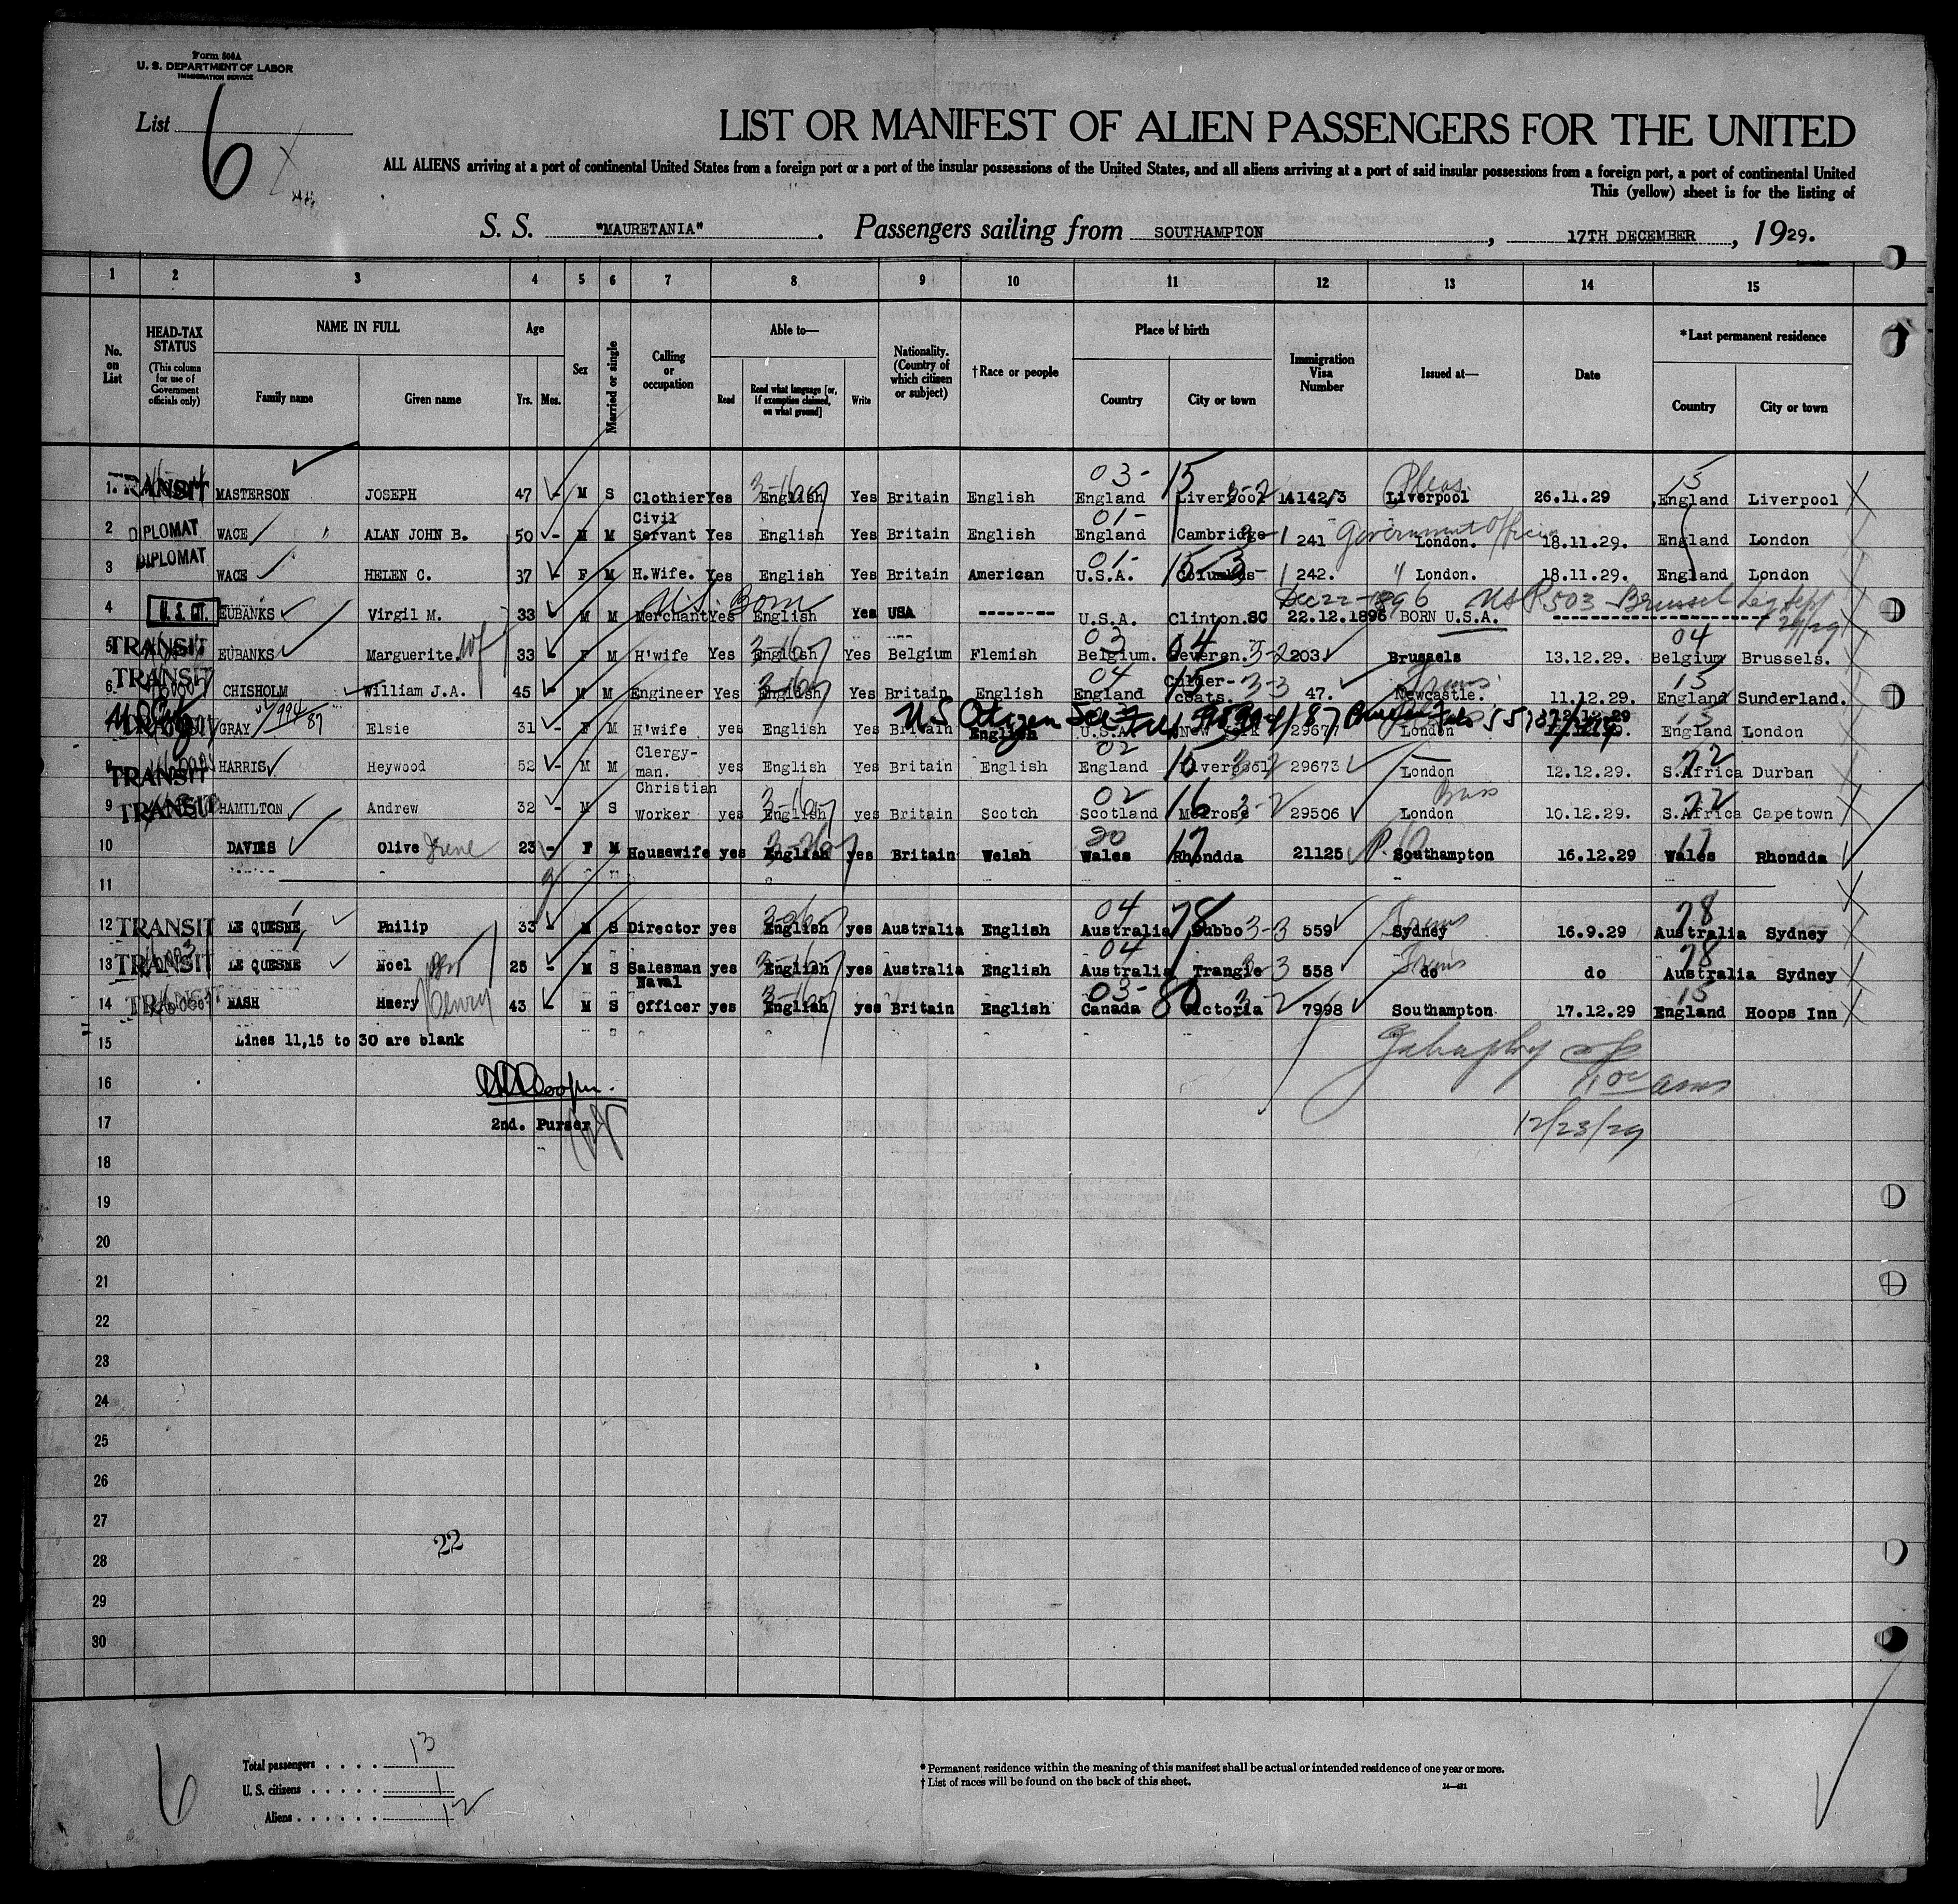 Form 500A
U. S. DEPARTMENT OF LABOR
IMMIGRATION SERVICE
List 6
LIST OR MANIFEST OF ALIEN PASSENGERS FOR THE UNITED
ALL ALIENS arriving at a port of continental United States from a foreign port or a port of the insular possessions of the United States, and all aliens arriving at a port of said insular possessions from a foreign port, a port of continental United
This (yellow) sheet is for the listing of
S. S. "MAURETANIA". Passengers sailing from SOUTHAMPTON, 17TH DECEMBER, 1929.
1 2 3 4 5 6 7 8 9 10 11 12 13 14 15
No. on List
HEAD-TAX STATUS (This column for use of Government officials only)
NAME IN FULL
Family name
Given name
Age
Yrs.
Mos.
Sex
Married or single
Calling or occupation
Able to—
Read
Read what language [or, if exemption claimed, on what ground]
Write
Nationality. (Country of which citizen or subject)
†Race or people
Place of birth
Country
City or town
Immigration Visa Number
Issued at—
Date
*Last permanent residence
Country
City or town
1. TRANSIT MASTERSON JOSEPH 47 - M S Clothier Yes English Yes Britain English 03- England 15 Liverpool 3-2 14142/3 Liverpool 26.11.29 15 England Liverpool
2 DIPLOMAT WACE ALAN JOHN B. 50 - M M Civil Servant Yes English Yes Britain English 01- England Cambridge 241 Government London. 18.11.29. England London
3 DIPLOMAT WACE HELEN C. 37 - F M H.Wife. Yes English Yes Britain American 01- U.S.A. 15-3- Columbus 242. " London. 18.11.29. England London
4 U. S. CIT. EUBANKS Virgil M. 33 M M Merchant Yes U.S. Born English Yes USA -------- U.S.A. Clinton.SC Dec 22-1896 22.12.1896 BORN U.S.A. 503 Brussel
5 TRANSIT EUBANKS Marguerite. Wf 33 - F M H'wife Yes English Yes Belgium Flemish 03 Belgium. 04 Severen. 3-2 203 Brussels 13.12.29. 04 Belgium Brussels.
6 TRANSIT CHISHOLM William J.A. 45 - M M Engineer Yes English Yes Britain English 04 England 15 Culder-coats. 3-3 47. Newcastle. 11.12.29. 15 England Sunderland.
GRAY 994/87 Elsie 31 - F M H'wife yes English Yes Britain English U.S.A. New York 29677 London 12.12.29 England London
US Citizen
8 TRANSIT HARRIS Heywood 52 - M M Clergy-man. yes English Yes Britain English 02 England 15 Liverpool 3-2 29673 London 12.12.29. 72 S.Africa Durban
9 TRANSIT HAMILTON Andrew 32 - M S Christian Worker yes English yes Britain Scotch 02 Scotland 16 Melrose 3-2 29506 London 10.12.29. 72 S.Africa Capetown
10 DAVIES Olive Irene 23 - F M Housewife yes English yes Britain Welsh 20 Wales 17 Rhondda 21125 Southampton 16.12.29 17 Wales Rhondda
11
12 TRANSIT LE QUESNE Philip 33 M S Director yes English yes Australia English 04 Australia 78 Dubbo 3-3 559 Sydney 16.9.29 78 Australia Sydney
13 TRANSIT LE QUESNE Noel 25 - M S Salesman yes English yes Australia English 04 Australia Trangie 3-3 558 do do 78 Australia Sydney
14 TRANSIT NASH Emery Henry 43 - M S Naval Officer yes English yes Britain English 03- Canada 80 Victoria 3-2 7998 Southampton 17.12.29 15 England Hoops Inn
15 Lines 11,15 to 30 are blank
16
2nd. Purser
17 12/23/29
18
19
20
21
22
23
24
25
26
27
22
28
29
30
6
Total passengers . . . . 13
U. S. citizens . . . . . 1
Aliens . . . . . . 12
* Permanent residence within the meaning of this manifest shall be actual or intended residence of one year or more.
† List of races will be found on the back of this sheet.
14—421